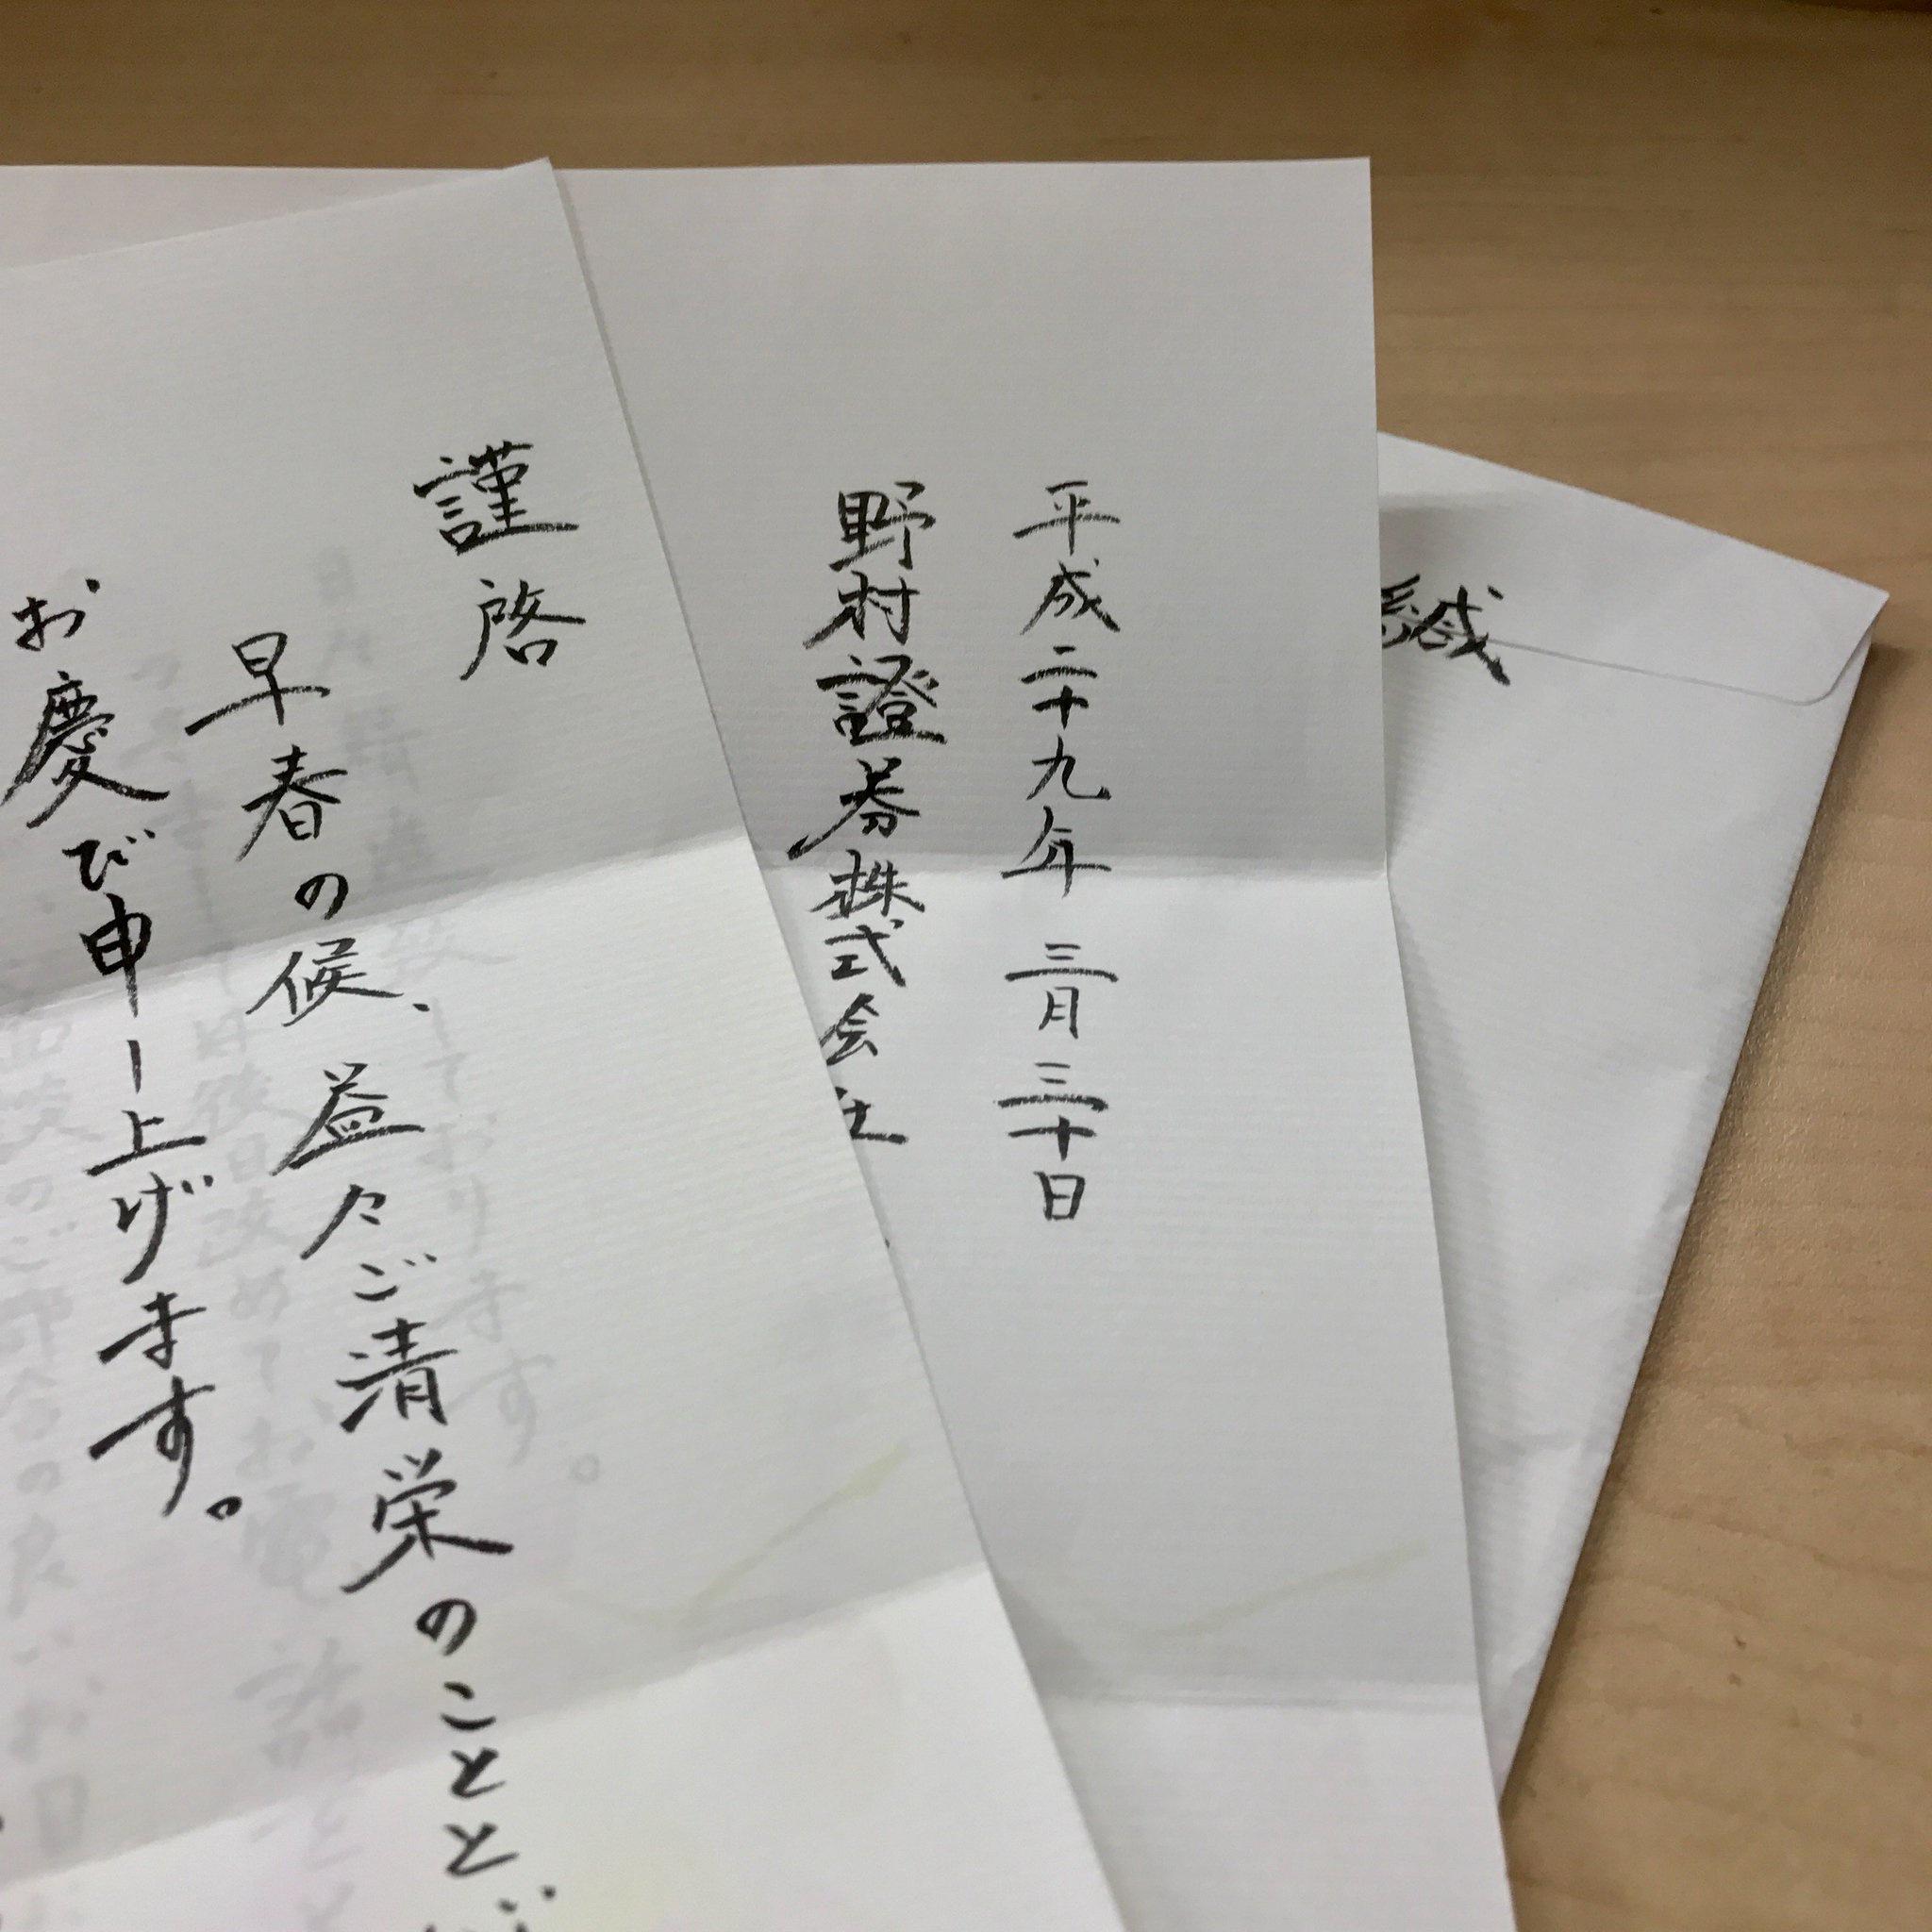 緘
平成二十九年 三月三十日
野村證券株式会社
謹啓
早春の候、益々ご清栄のことと
お慶び申し上げます。